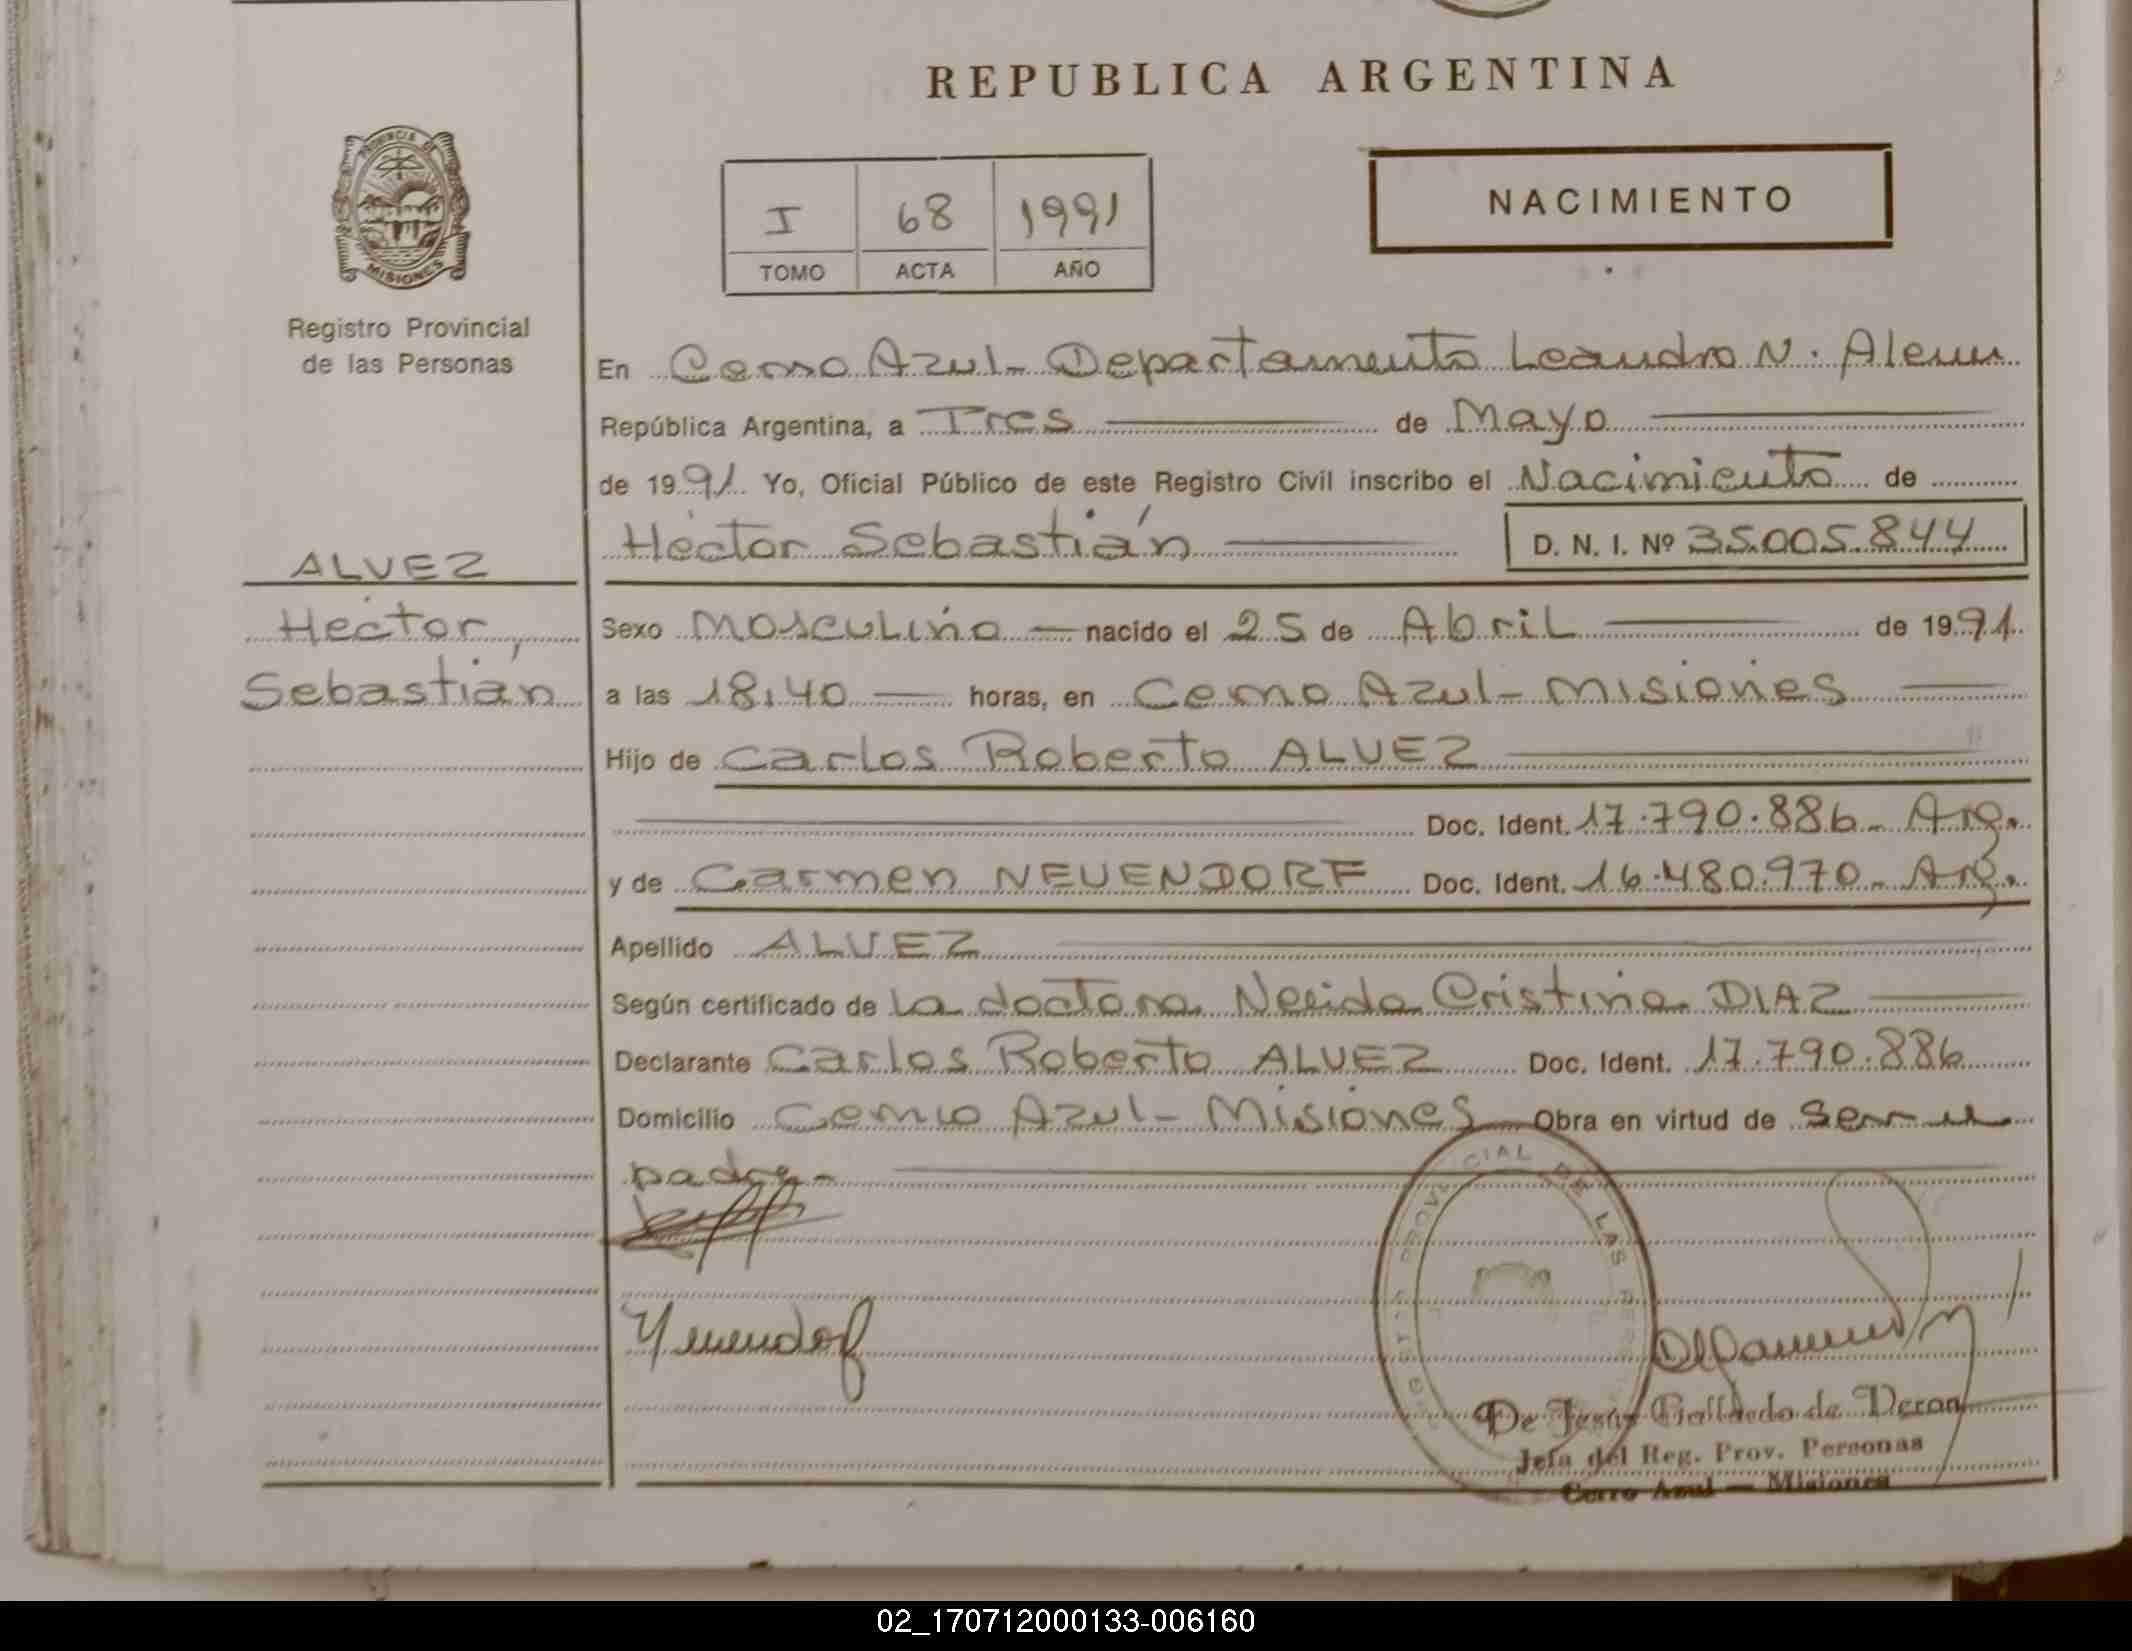 REPUBLICA ARGENTINA
PROVINCIA DE
MISIONES
Registro Provincial
de las Personas
I 68 1991
TOMO ACTA AÑO
NACIMIENTO
En Cerro Azul - Departamento Leandro N. Alem
República Argentina, a Tres de Mayo
de 1991 Yo, Oficial Público de este Registro Civil inscribo el Nacimiento de
Héctor Sebastián D. N. I. Nº 35.005.844
ALVEZ
Hector,
Sebastián
Sexo Masculino nacido el 25 de Abril de 1991.
a las 18,40 horas, en Cerro Azul - Misiones
Hijo de Carlos Roberto ALVEZ
Doc. Ident. 17.790.886 - Arg.
y de Carmen NEUENDORF Doc. Ident. 16.480.970 - Arg.
Apellido ALVEZ
Según certificado de la doctora Cristina DIAZ
Declarante Carlos Roberto ALVEZ Doc. Ident. 17.790.886
Domicilio Cerro Azul - Misiones Obra en virtud de ser su
padre -
CIAL DE LAS
De Jesús Gallardo de Deran
Jefa del Reg. Prov. Personas
Cerro Azul — Misiones
02_170712000133-006160